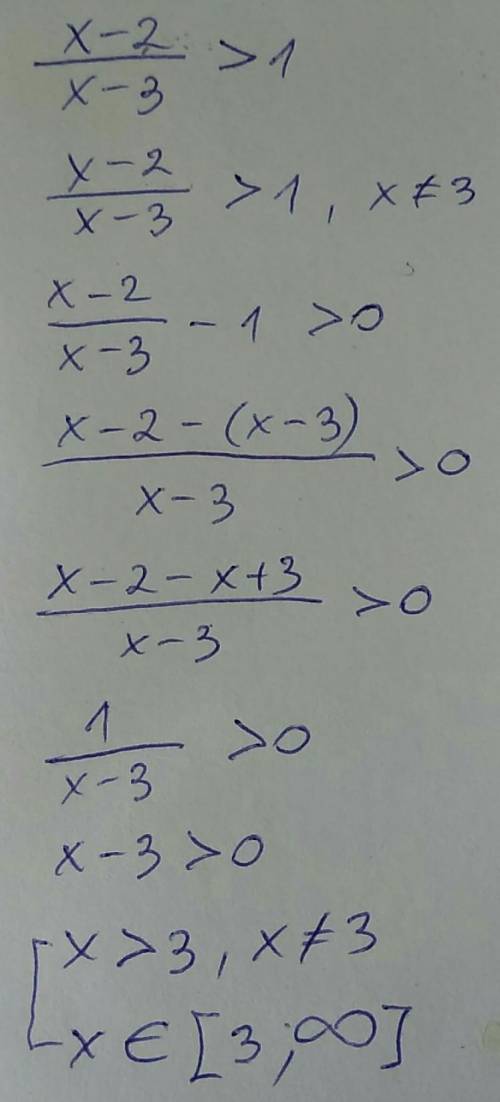 x-2/x-3 >1
x-2/x-3 >1, x≠3
x-2/x-3 -1 >0
x-2-(x-3)/x-3 >0
x-2-x+3/x-3 >0
1/x-3 >0
x-3>0
x>3, x≠3
x∈[3;∞]